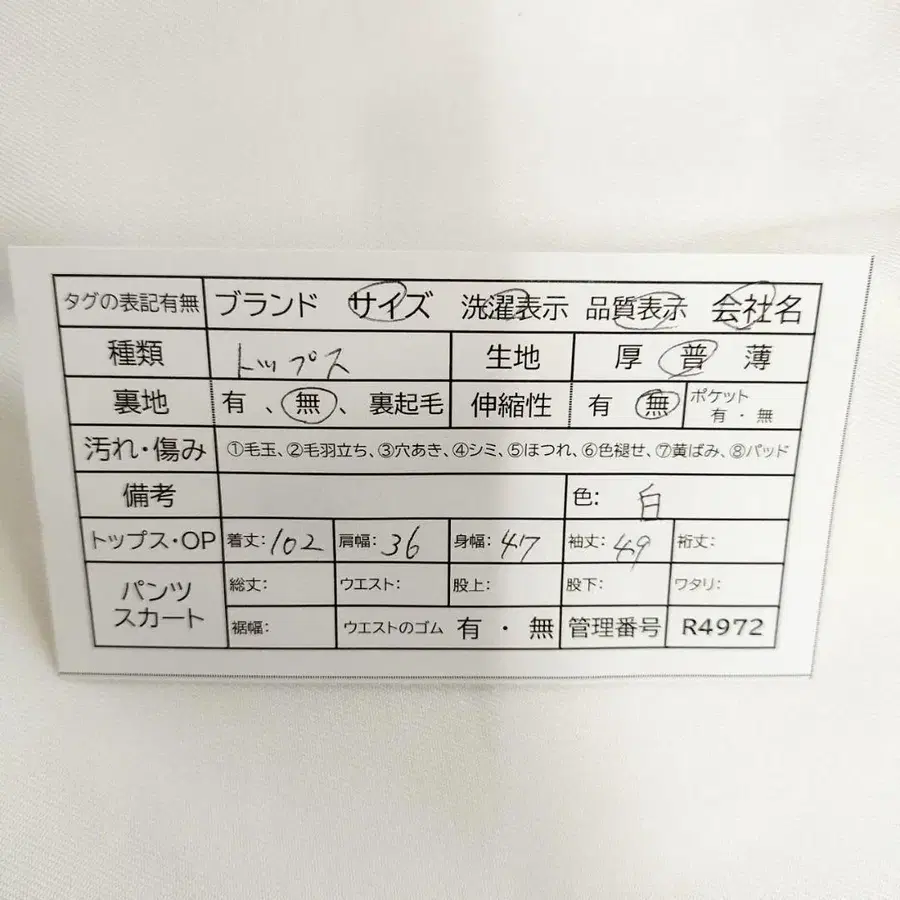 タグの表記有無 ブランド サイズ 洗濯表示 品質表示 会社名
種類 トップス 生地 厚 普 薄
裏地 有、無、裏起毛 伸縮性 有 無 ポケット 有・無
汚れ・傷み ①毛玉、②毛羽立ち、③穴あき、④シミ、⑤ほつれ、⑥色褪せ、⑦黄ばみ、⑧パッド
備考 色: 白
トップス・OP 着丈: 102 肩幅: 36 身幅: 47 袖丈: 49 裄丈:
パンツ スカート 総丈: ウエスト: 股上: 股下: ワタリ:
裾幅: ウエストのゴム 有・無 管理番号 R4972